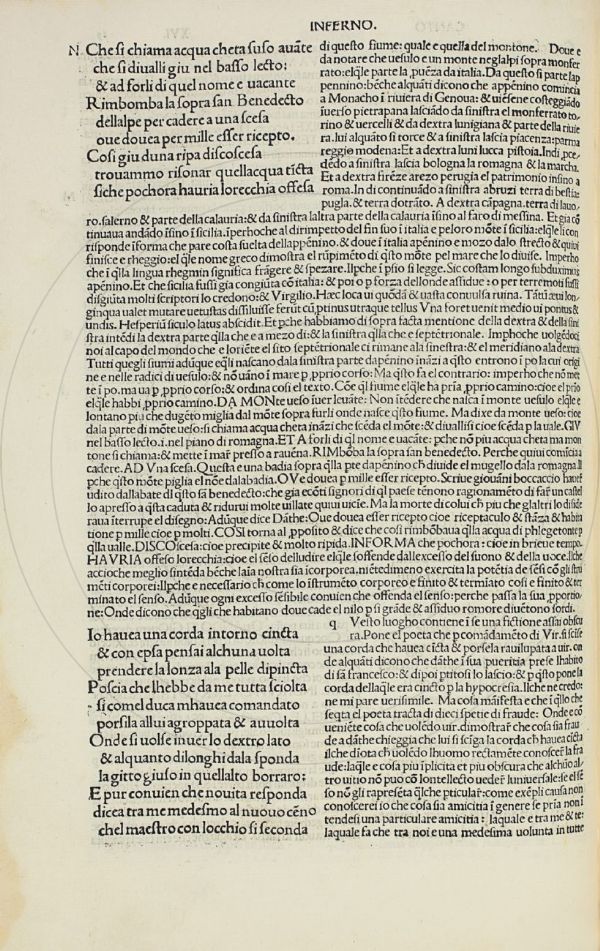 INFERNO.
N Che si chiama acqua cheta suso auãte
che si diualli giu nel basso lecto:
& ad forli di quel nome e uacante
Rimbomba la sopra san Benedecto
dellalpe per cadere a una scesa
oue douea per mille esser ricepto.
Cosi giu duna ripa discoscesa
trouammo risonar quellacqua ticta
siche pochora hauria lorecchia offesa
di questo fiume: quale e quella del montone. Doue e
da notare che uesulo e un monte neglalpi sopra monfer
rato: elqle parte la puẽza da italia. Da questo si parte lap
pennino: bẽche alquãti dicono che appenino comincia
a Monacho ĩ riuiera di Genoua: & uiẽsene costeggiãdo
iuerso pietrapana lasciãdo da sinistra el monferrato to,
rino & uercelli & da dextra lunigiana & parte della riuie
ra. lui alquãto si torce & a sinistra lascia piacenza: parma
reggio modena: Et a dextra luni lucca pistoia. Indi pce,
dẽdo a sinistra lascia bologna la romagna & la marcha.
Et a dextra firẽze arezo perugia el patrimonio insino a
roma. In di continuãdo a sinistra abruzi terra di bestia:
pugla. & terra dotrãto. A dextra cãpagna. terra di lauo,
ro. salerno & parte della calauria: & da sinistra laltra parte della calauria ĩsino al faro di messina. Et gia cõ
tinuaua andãdo ĩsino ĩ sicilia. ĩperhoche al dirimpetto del fin suo ĩ italia e peloro mõte ĩ sicilia: elqle li con
risponde ĩ forma che pare costa suelta dellappẽnino. & doue ĩ italia apẽnino e mozo dalo strecto & quiui
finisce e rheggio: el qle nome greco dimostra el rũpimẽto di qsto mõte pel mare che lo diuise. Imperho
che ĩ qlla lingua rhegmin significa frãgere & spezare. Ilpche ĩ psio si legge. Sic costam longo subduximus
apenino. Et che sicilia fussi gia congiũta cõ italia: & poi o p forza dellonde assidue: o per terremoti fussi
disgiũta molti scriptori lo credono: & Virgilio. Hæc loca ui quõdã & uasta conuulsa ruina. Tãtũ æui lon,
ginqua ualet mutare uetustas dissiluisse ferũt cũ ptinus utraque tellus Vna foret uenit medio ui pontus &
undis. Hesperiũ siculo latus abscidit. Et pche habbiamo di sopra facta mentione della dextra & della sini
stra intẽdi la dextra parte qlla che e a mezo di: & la sinistra qlla che e septẽtrionale. Imphoche uolgẽdoci
noi al capo del mondo che e loriẽte el sito septẽtrionale ci rimane ala sinestra: & el meridiano ala dextra.
Tutti quegli fiumi adũque eqli nascano dala sinistra parte dapenino inãzi a qsto entrono ĩ po la cui origi
ne e nelle radici di uesulo: & nõ uãno ĩ mare p pprio corso: Ma qsto fa el contrario: imperho che nõ met
te ĩ po. ma ua p pprio corso: & ordina cosi el texto. Cõe ql fiume elqle ha pria pprio camino: cioe el prio
elqle habbi pprio camino. DA MONte ueso iuer leuãte: Non ĩtẽdere che nasca ĩ monte uesulo elqle e
lontano piu che dugẽto miglia dal mõte sopra furli onde nasce qsto fiume. Ma di xe da monte ueso: cioe
dala parte di mõte ueso: si chiama acqua cheta inãzi che scẽda el mõte: & diuallisi cioe scẽda p la uale. GIV
nel basso lecto. i. nel piano di romagna. ET A forli di ql nome e uacãte: pche nõ piu acqua cheta ma mon
tone si chiama: & mette ĩ mar presso a rauẽna. RIMboba la sopra san benedecto. Perche qui comĩcia a
cadere. AD Vna scesa. Questa e una badia sopra qlla pte dapenino ch diuide el mugello dala romagna Il
pche qsto mõte piglia el nõe dalabadia. OVe douea p mille esser ricepto. Scriue giouãni boccaccio hauer
udito dallabate dl qsto sã benedecto: che gia ecõti signori di ql paese tẽnono ragionamẽto di far un castel
lo apresso a qsta caduta & ridurui molte uillate quiui uicie. Ma la morte di colui ch piu che glaltri lo diside
raua iterrupe el disegno: Adũque dice Dãthe: Oue douea esser ricepto cioe riceptaculo & stãza & habita
tione p mille cioe p molti. COSI torna al pposito & dice che cosi rimbõbaua qlla acqua di phlegetonte p
qlla ualle. DIScoscesa: cioe precipite & molto ripida. INFORMA che pochora: cioe in brieue tempo
HAVRIA offeso lorecchia: cioe el sẽso delludire elqle soffende dallexcesso del suono & della uoce. Ilche
accioche meglio sintẽda bẽche laĩa nostra sia ĩcorporea, niẽtedimeno exercita la potẽtia de sẽsi cõ gli stru
mẽti corporei: Ilpche necessario ch come lo ĩstrumẽto corporeo e finito & termĩato cosi e finito & ter
minato el senso. Adũque ogni excesso sẽsibile conuien che offenda el senso: perche passa la sua pportio,
ne: Onde dicono che qgli che habitano doue cade el nilo p si grãde & assiduo romore diuẽtono sordi.
Io hauea una corda intorno cincta
& con epsa pensai alchuna uolta
prendere la lonza ala pelle dipincta
Poscia che lhebbe da me tutta sciolta
si comel duca mhauea comandato
porsila allui agroppata & auuolta
Onde si uolse inuer lo dextro lato
& alquanto dilonghi dala sponda
la gitto giuso in quellalto borraro:
E pur conuien che nouita responda
dicea tra me medesmo al nuouo cẽno
chel maestro con locchio si seconda
q Vesto luogho contiene ĩ se una fictione assai obscu
ra. Pone el poeta che p comãdamẽto di Vir. si scise
una corda che hauea cĩcta & porsela rauilupata a uir. on
de alquãti dicono che dãthe ĩ sua pueritia prese lhabito
di sã francesco: & dipoi ptitosi lo lascio: & p qsto pone la
corda dellaqle era cincto p la hypocresia. Ilche ne credo:
ne mi pare uerisimile. Ma cosa mãifesta e che ĩ qllo che
seqta el poeta tracta di dieci spetie di fraude: Onde e cõ
ueniẽte cosa che uolẽdo uir. dimostrar che cosa sia frau
de a dãthe chieggia che lui si scĩga la corda ch hauea cĩcta
ilche diota ch uolẽdo lhuomo rectamẽte conoscer la fra
ude: laqle e cosa piu ĩplicita et piu obscura che alchũo al,
tro uitio nõ puo cõ lontellecto ueder luniuersale: se el sẽ
so nõ gli rapresẽta qlche pticular: come exẽpli causa non
conoscerei io che cosa sia amicitia ĩ genere se pria non ĩ
tendesi una particulare amicitia: laquale e tra me & te:
laquale fa che tra noi e una medesima uolunta in tutte